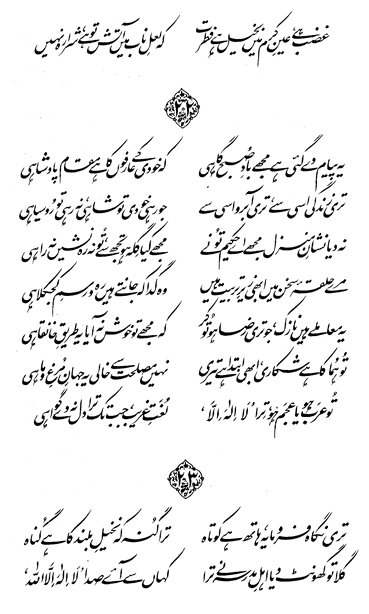 غضب ہے عینِ کرم میں بخیل ہے فطرت کہ لعلِ ناب میں آتش تو ہے شرارہ نہیں
۲۲
یہ پیام دے گئی ہے مجھے بادِ صبح گاہی کہ خودی کے عارفوں کا ہے مقام پادشاہی
تری زندگی اسی سے تری آبرو اسی سے جو رہی خودی تو شاہی نہ رہی تو رُوسیاہی
نہ دیا نشانِ منزل مجھے اے حکیم تُو نے مجھے کیا گلہ ہو تجھ سے تُو نہ رہ نشیں نہ راہی
مرے حلقۂ سخن میں ابھی زیرِ تربیت ہیں وہ گدا کہ جانتے ہیں رہ و رسمِ کجکلاہی
یہ معاملے ہیں نازک، جو تری رضا ہو تُو کر کہ مجھے تو خوش نہ آیا یہ طریقِ خانقاہی
تُو ہما کا ہے شکاری ابھی ابتدا ہے تیری نہیں مصلحت سے خالی یہ جہانِ مُرغ و ماہی
تُو عرب ہو یا عجم ہو ترا ’لَا اِلٰہ اِلَّا‘ لُغتِ غریب، جب تک ترا دل نہ دے گواہی
۲۳
تری نگاہ فرومایہ ہاتھ ہے کوتاہ ترا گُنہ کہ نخیلِ بلند کا ہے گُناہ
گلا تو گھونٹ دیا اہلِ مدرسہ نے ترا کہاں سے آئے صدا ’لَا اِلٰہ اِلَّا اللہ‘